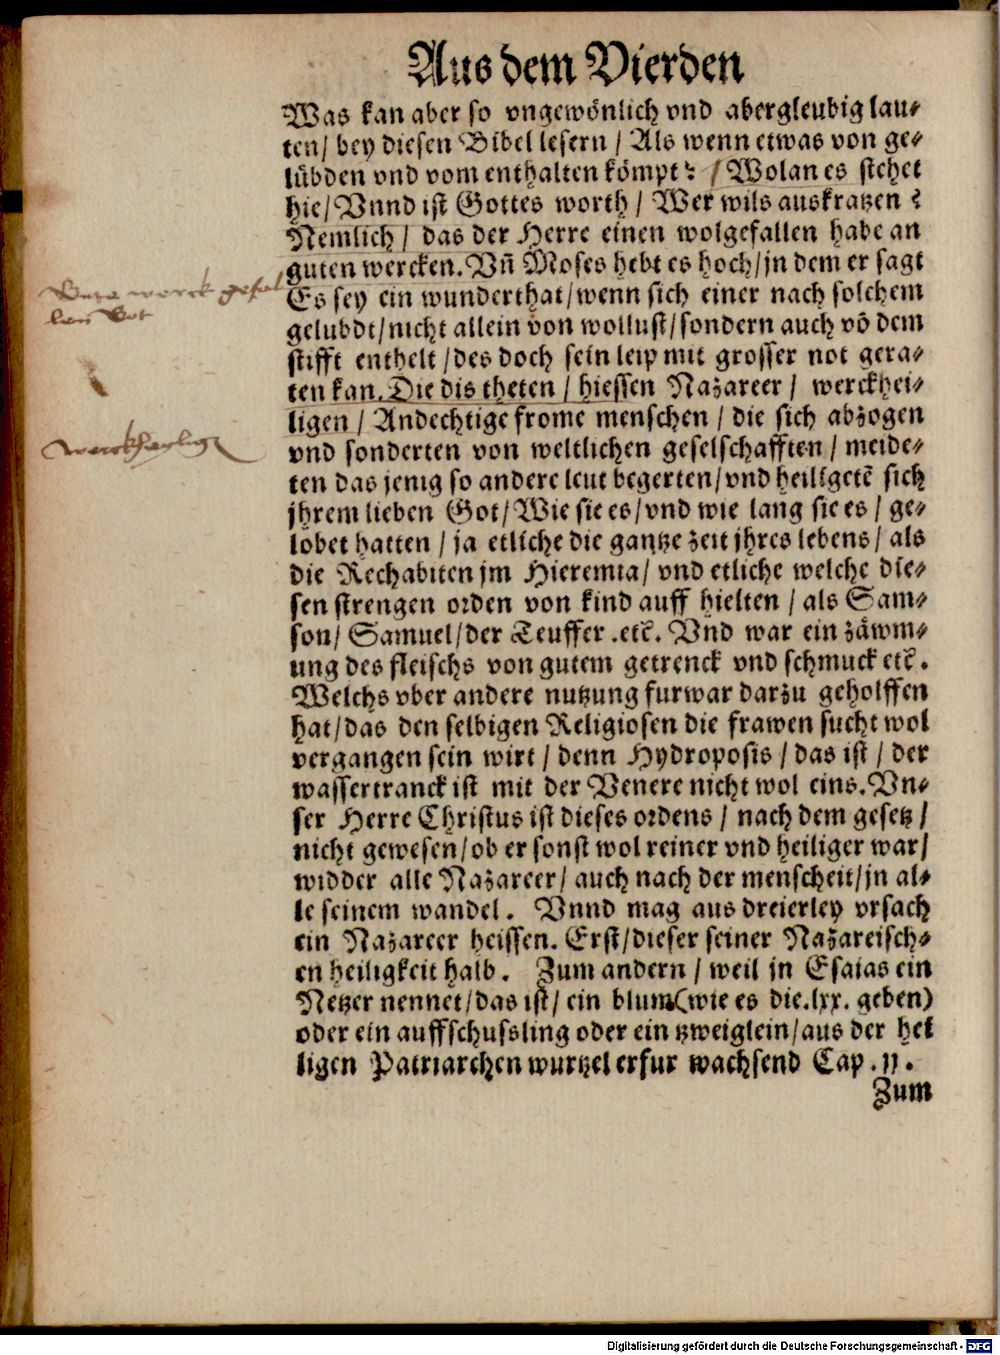 Aus dem Vierden
Was kan aber so vngewönlich vnd abergleubig lau⸗
ten/ bey diesen Bibel lesern / Als wenn etwas von ge⸗
lübden vnd vom enthalten kömpt? / Wolan es stehet
hie/ Vnnd ist Gottes worth / Wer wils auskratzen ?
Nemlich / das der Herre einen wolgefallen habe an
guten wercken. Vñ Moses hebt es hoch/ jn dem er sagt
Gute werck gefal
len Got
Es sey ein wunderthat/wenn sich einer nach solchem
gelubdt/nicht allein von wollust/sondern auch võ dem
stifft enthelt /des doch sein leip mit grosser not gera⸗
ten kan. Die dis theten / hiessen Nazareer / werckhei⸗
ligen / Andechtige frome menschen / die sich abzogen
werckheylig
vnd sonderten von weltlichen geselschafften / meide⸗
ten das jenig so andere leut begerten/vnd heiligetẽ sich
jhrem lieben Got/ Wie sie es/ vnd wie lang sie es / ge⸗
löbet hatten / ja etliche die gantze zeit jhres lebens/ als
die Rechabiten jm Hieremia/ vnd etliche welche die⸗
sen strengen orden von kind auff hielten / als Sam⸗
son/ Samuel/der Teuffer .etc̃. Vnd war ein zäwm⸗
ung des fleischs von gutem getrenck vnd schmuck etc̃.
Welchs vber andere nutzung furwar darzu geholffen
hat/das den selbigen Religiosen die frawen sucht wol
vergangen sein wirt / denn Hydroposis / das ist / der
wassertranck ist mit der Venere nicht wol eins. Vn⸗
ser Herre Christus ist dieses ordens / nach dem gesetz /
nicht gewesen/ob er sonst wol reiner vnd heiliger war/
widder alle Nazareer/ auch nach der menscheit/jn al⸗
le seinem wandel. Vnnd mag aus dreierley vrsach
ein Nazareer heissen. Erst/dieser seiner Nazareisch⸗
en heiligkeit halb. Zum andern / weil jn Esaias ein
Netzer nennet/das ist/ ein blum(wie es die.lxx. geben)
oder ein auffschussling oder ein tzweiglein/aus der hei
ligen Patriarchen wurtzel erfur wachsend Cap .11.
Zum
Digitalisierung gefördert durch die Deutsche Forschungsgemeinschaft - DFG